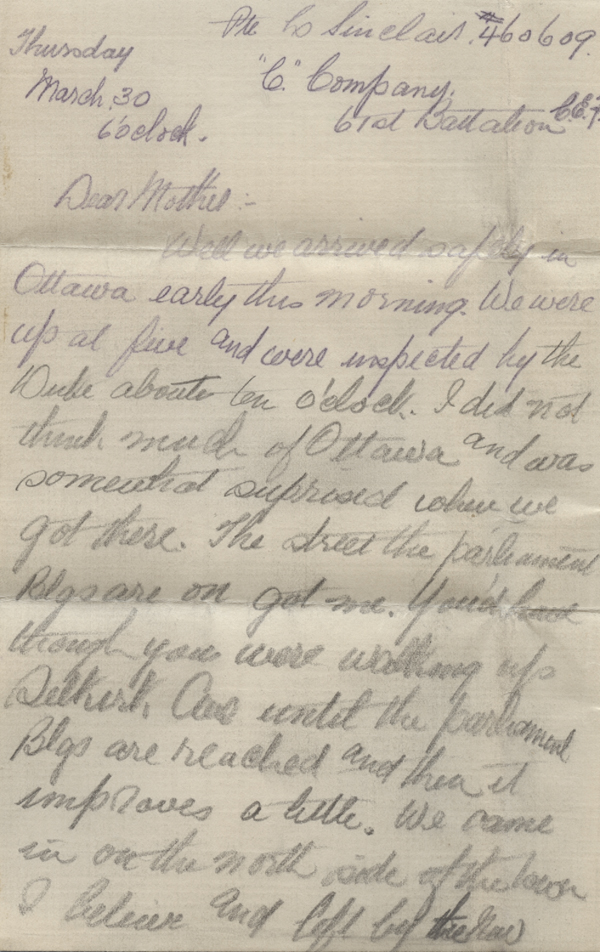 Pte Lo Sinclair #460609.
Thursday
"C." Company.
March, 30
61st Battalion C.E.F.
6 o'clock.
Dear Mother:-
Well we arrived safely in
Ottawa early this morning. We were
up at five and were inspected by the
Duke about ten o'clock. I did not
think much of Ottawa and was
somewhat suprised when we
got there. The street the parliament
Blgs are on got me. You'd have
though you were walking up
Selkirk Ave until the parliament
Blgs are reached and then it
improves a little. We came
in on the north side of the town
I believe and left by the New